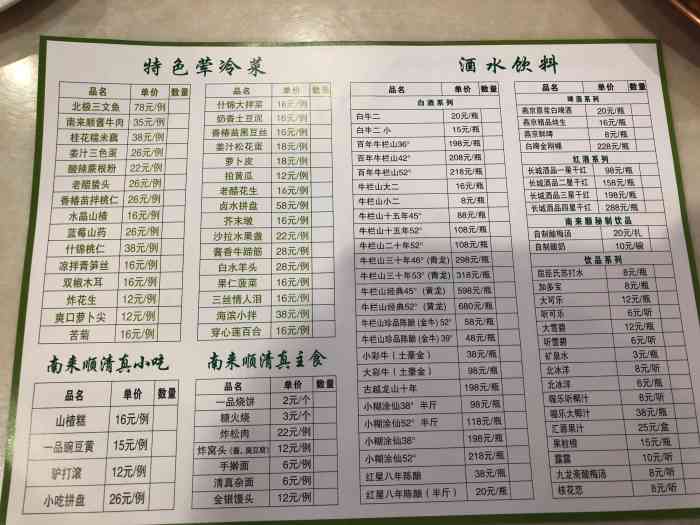 特色荤冷菜
品名 单价 数量
北极三文鱼 78元/例
南来顺酱牛肉 35元/例
桂花糯米藕 38元/例
姜汁三色蛋 26元/例
酸辣蕨根粉 22元/例
老醋蜇头 26元/例
香椿苗拌桃仁 26元/例
水晶山楂 16元/例
蓝莓山药 26元/例
什锦桃仁 38元/例
凉拌青笋丝 16元/例
双椒木耳 16元/例
炸花生 12元/例
爽口萝卜尖 12元/例
苦菊 16元/例
品名 单价 数量
什锦大拌菜 16元/例
奶香土豆泥 16元/例
香椿苗黑豆丝 16元/例
姜汁松花蛋 16元/例
萝卜皮 16元/例
拍黄瓜 12元/例
老醋花生 16元/例
卤水拼盘 58元/例
芥末墩 16元/例
沙拉水果盏 22元/例
酱香牛蹄筋 28元/例
白水羊头 28元/例
果仁菠菜 16元/例
三丝情人泪 16元/例
海滨小拌 38元/例
穿心莲百合 16元/例
南来顺清真小吃
品名 单价 数量
山楂糕 16元/例
一品豌豆黄 15元/例
驴打滚 12元/例
小吃拼盘 26元/例
南来顺清真主食
品名 单价 数量
一品烧饼 2元/个
糖火烧 3元/个
炸松肉 22元/例
炸窝头（酱、臭豆腐） 12元/例
手擀面 6元/例
清真杂面 6元/例
金银馒头 12元/例
酒水饮料
品名 单价 数量
白酒系列
白牛二 20元/瓶
白牛二 小 15元/瓶
百年牛栏山36° 198元/瓶
百年牛栏山42° 208元/瓶
百年牛栏山52° 218元/瓶
牛栏山大二 16元/瓶
牛栏山小二 8元/瓶
牛栏山十五年45° 88元/瓶
牛栏山十五年52° 108元/瓶
牛栏山二十年52° 108元/瓶
牛栏山三十年46°(青龙) 298元/瓶
牛栏山三十年53°(青龙) 318元/瓶
牛栏山经典45°（黄龙） 598元/瓶
牛栏山经典52°（黄龙） 680元/瓶
牛栏山珍品陈酿(金牛)52° 58元/瓶
牛栏山珍品陈酿(金牛)39° 48元/瓶
小彩牛（土豪金） 38元/瓶
大彩牛（土豪金） 98元/瓶
古越龙山十年 198元/瓶
小糊涂仙38° 半斤 98元/瓶
小糊涂仙52° 半斤 118元/瓶
小糊涂仙52° 198元/瓶
小糊涂仙52° 218元/瓶
红星八年陈酿 38元/瓶
红星八年陈酿（半斤） 20元/瓶
品名 单价 数量
啤酒系列
燕京原浆白啤酒 20元/瓶
燕京精品纯生 16元/瓶
燕京鲜啤 8元/瓶
白啤金刚螺 228元/瓶
红酒系列
长城酒品一星干红 98元/瓶
长城酒品二星干红 158元/瓶
长城酒品三星干红 198元/瓶
长城酒品四星干红 288元/瓶
南来顺秘制饮品
自制酸梅汤 20元/扎
自制酸奶 10元/碗
饮品系列
屈臣氏苏打水 8元/瓶
加多宝 8元/瓶
大可乐 12元/瓶
听可乐 6元/听
大雪碧 12元/瓶
听雪碧 6元/听
矿泉水 3元/瓶
北冰洋 6元/听
北冰洋 6元/瓶
椰乐听椰汁 8元/听
椰乐大椰汁 38元/瓶
汇源果汁 25元/盒
果粒橙 15元/瓶
露露 10元/听
九龙斋酸梅汤 8元/听
桂花恋 8元/听